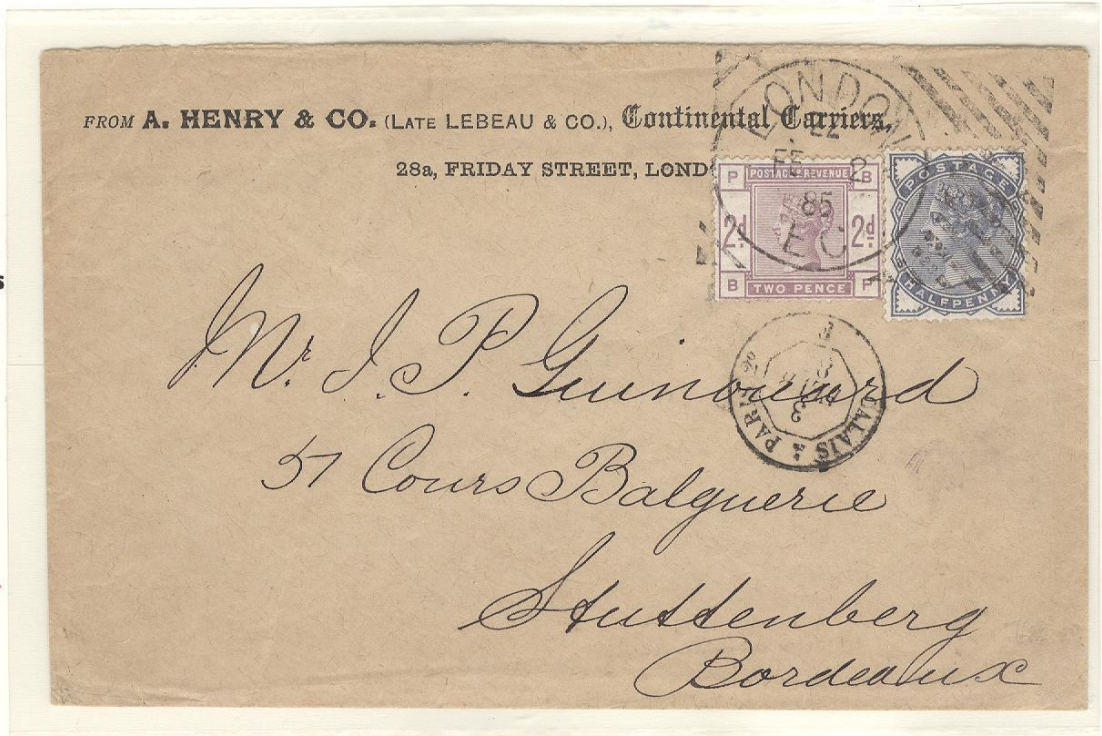 FROM A. HENRY & CO. (LATE LEBEAU & CO.), Continental Carriers,
28a, FRIDAY STREET, LOND
LONDON
EZ
FE 2
85
E C
P POSTAGE & REVENUE B
2d 2d
B TWO PENCE P
POSTAGE
HALFPENNY
CALAIS A PARIS
3
Mr. J. P. Guinouard
57 Cours Balguerie
Stuttenberg
Bordeaux
s